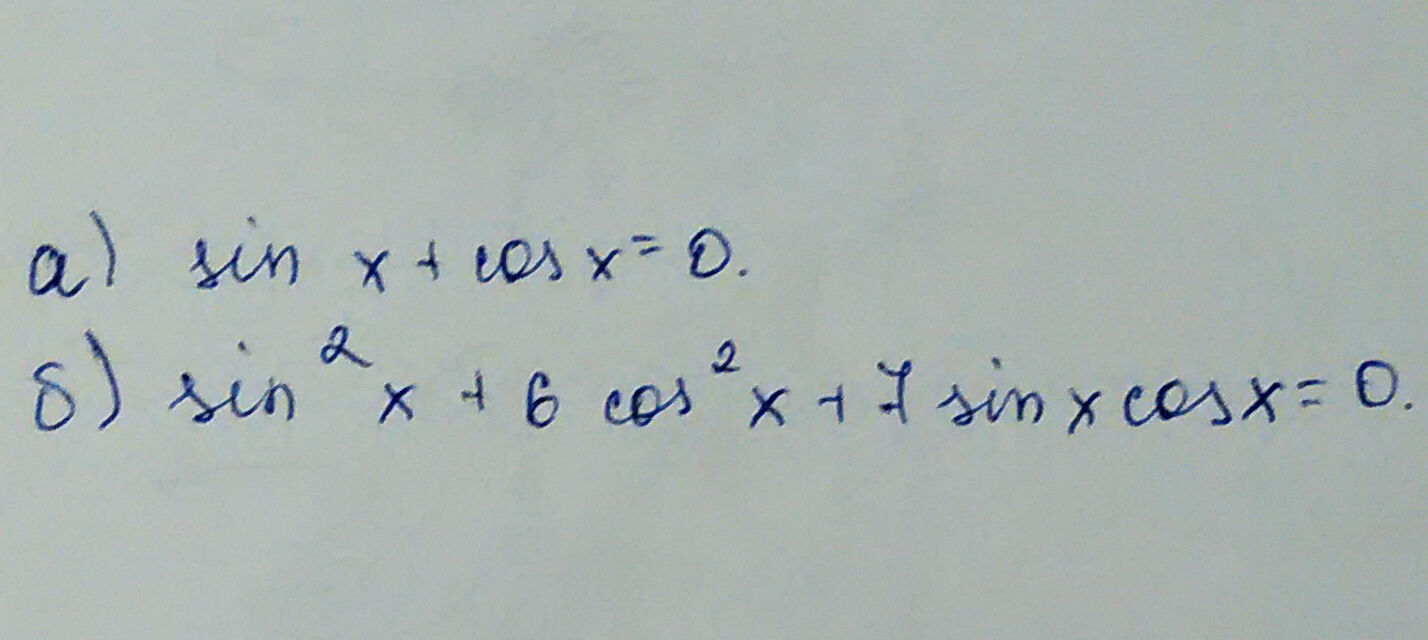 а) sin x + cos x = 0.
б) sin²x + 6 cos²x + 7 sin x cos x = 0.